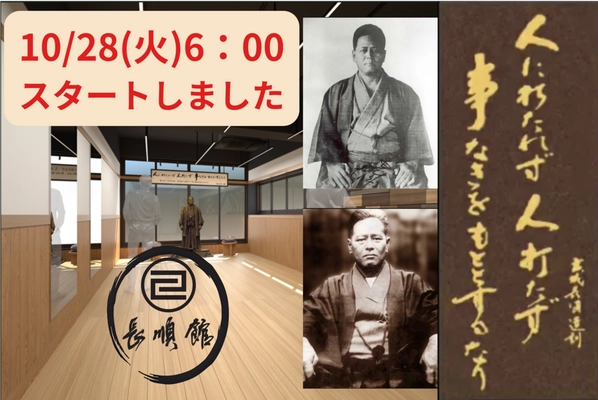 10/28(火)6：00
スタートしました
長順館
人に打たれず 人打たず
事なきをもととするなり